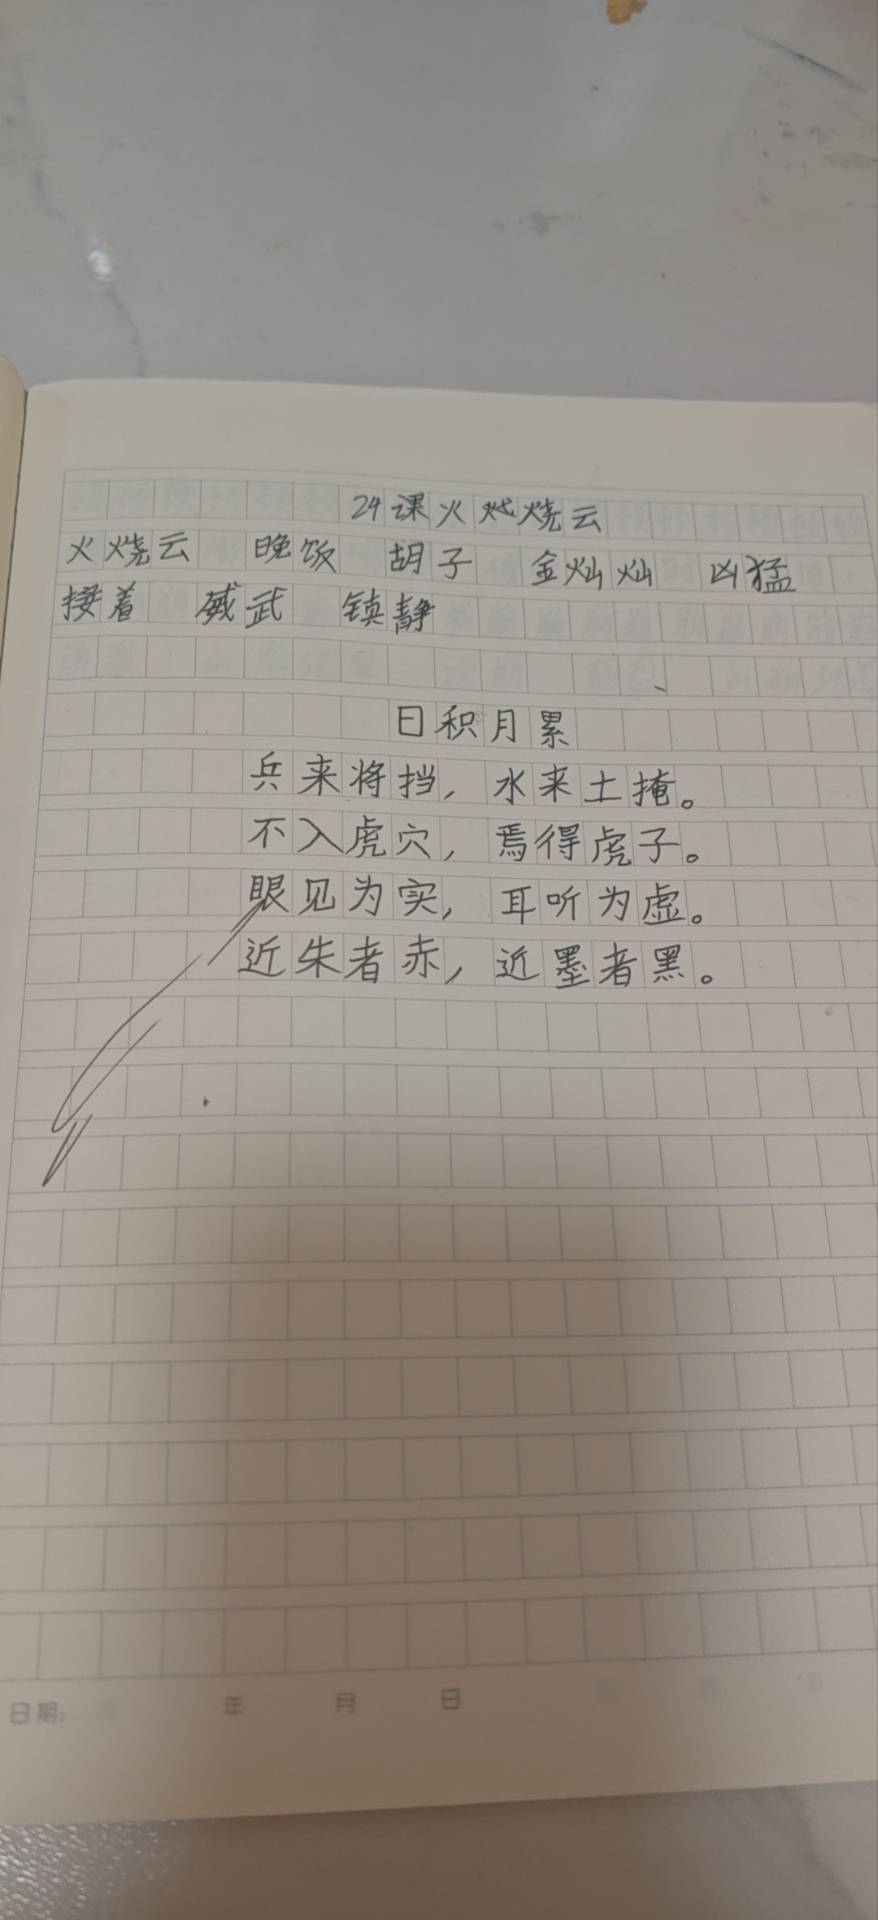 24课火烧云
火烧云 晚饭 胡子 金灿灿 凶猛
接着 威武 镇静
日积月累
兵来将挡，水来土掩。
不入虎穴，焉得虎子。
眼见为实，耳听为虚。
近朱者赤，近墨者黑。
日期: 年 月 日